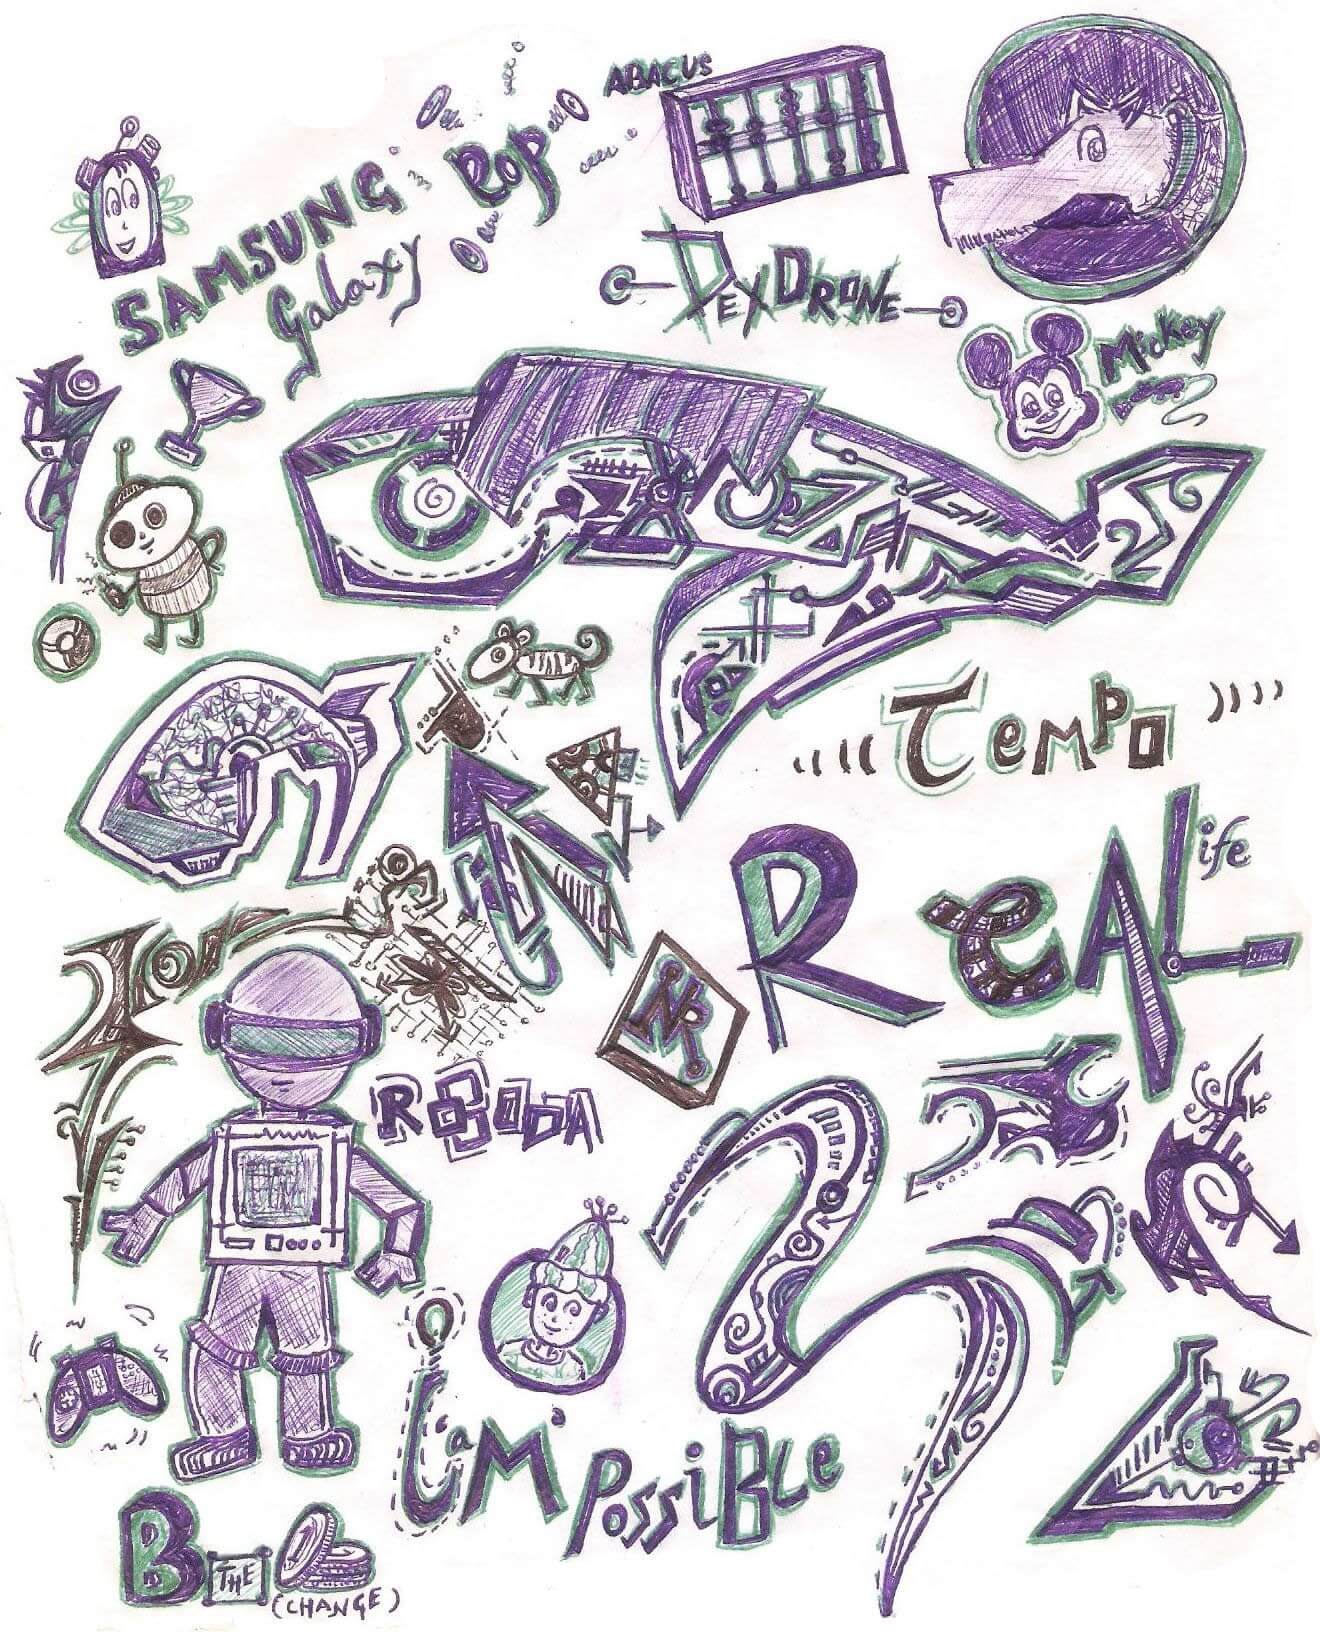 ABACUS
SAMSUNG
Galaxy
Pop
DexDRONE
Mickey
Tempo
ReAL
life
NR
I'aM'PossiBLe
B THE
(CHANGE)